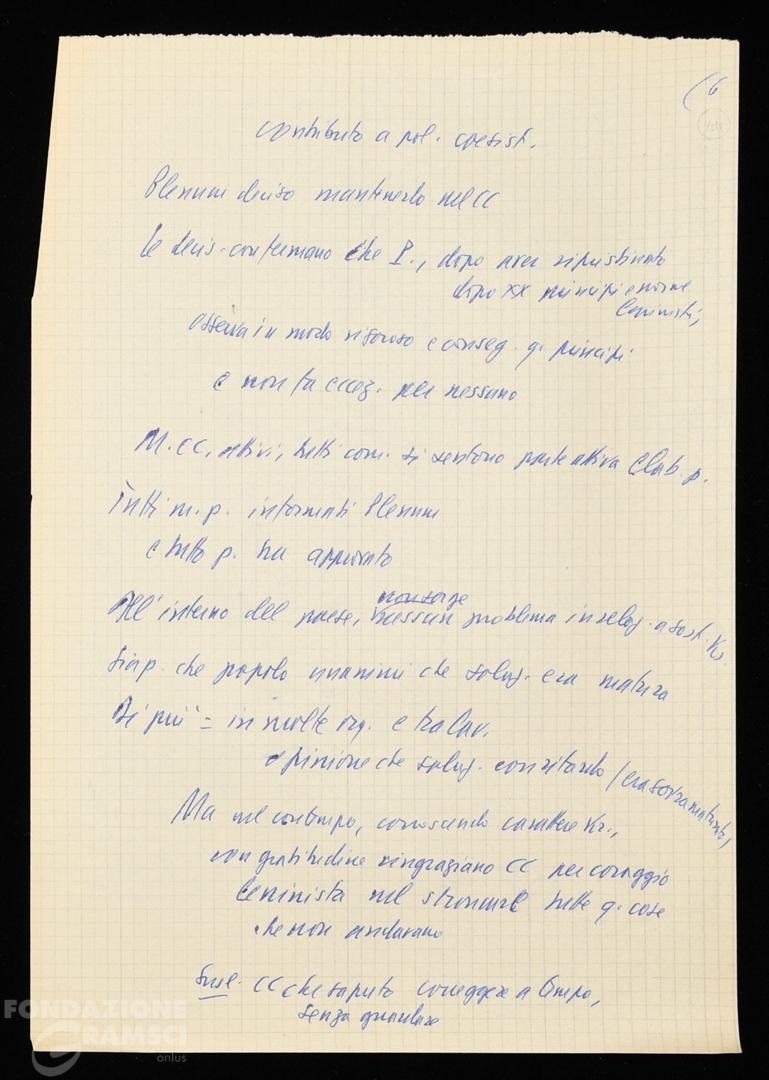 6
contributo a pol. coesist.
Plenum deciso mantenerlo nel CC
le decis. confermano che P., dopo aver ripristinato
dopo XX principi e norme
leninisti,
osserva in modo rigoroso e conseg. q. principi
e non fa eccez. per nessuno
M. CC, attivi, tutti com. si sentono parte attiva elab. p.
Tutti m. p. informati Plenum
e tutto p. ha approvato
All'interno del paese, non sorge nessun problema in relaz. a sost. Kr.
Si ap. che popolo unanimi che soluz. era matura
Di più = in molte org. e tra lav.
opinione che soluz. con ritardo
Ma nel contempo, conoscendo carattere Kr.,
con gratitudine ringraziano CC per coraggio
leninista nel stroncare tutte q. cose
che non andavano
Susl. CC che saputo correggere a tempo,
senza guardare
FONDAZIONE
GRAMSCI
onlus